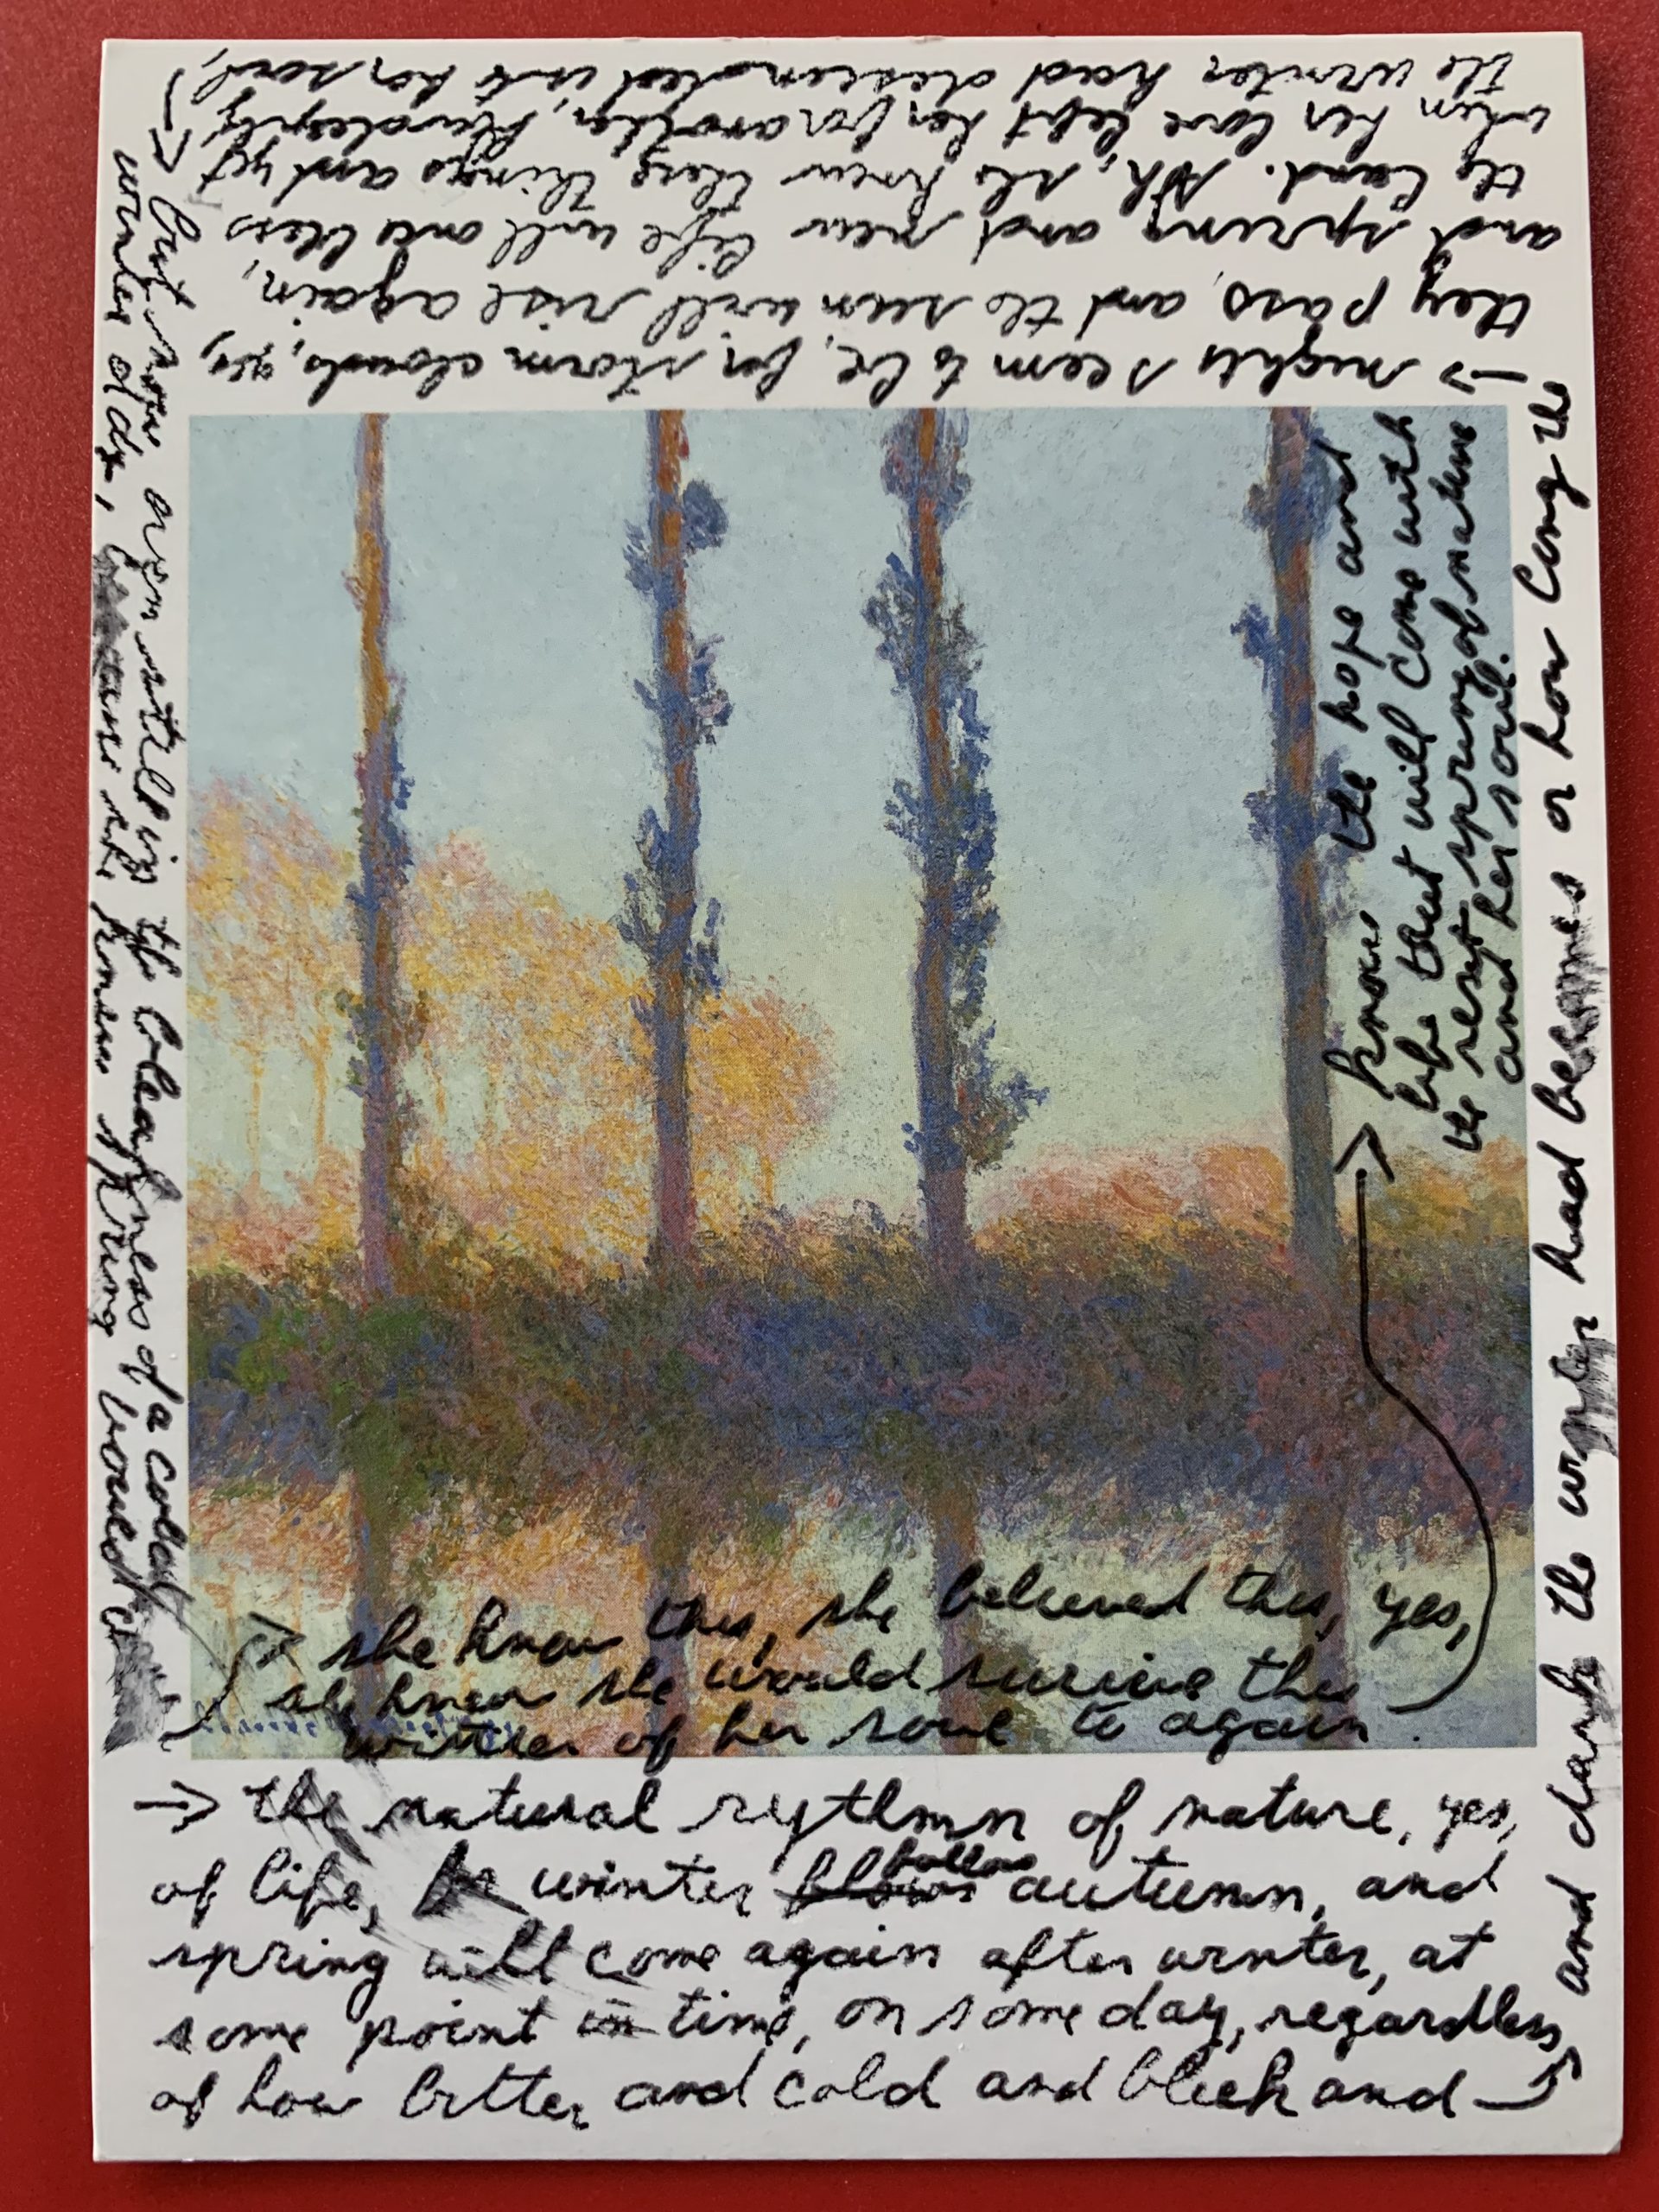 → the natural rythmn of nature, yes,
of life, winter follows autumn, and
spring will come again after winter, at
some point in time, on some day, regardless
of how bitter and cold and bleek and →
and dark the winter had becomes or how long the
→ nights seem to be, for storm clouds, yes,
they pass, and the sun will rise again,
and spring and new life will once bless
the land. Ah, she knew these things and yet
when her love left her for another, heartlessly,
the winter had descended into her soul,
→ but now, again still in the bleakness of a cold
winter day, because she knew spring would
→ she knew this, she believed this, yes,
she knew she would survive this
winter of her soul to again
→ know the hope and
life that will come with
the resept spring of nature
and her soul.